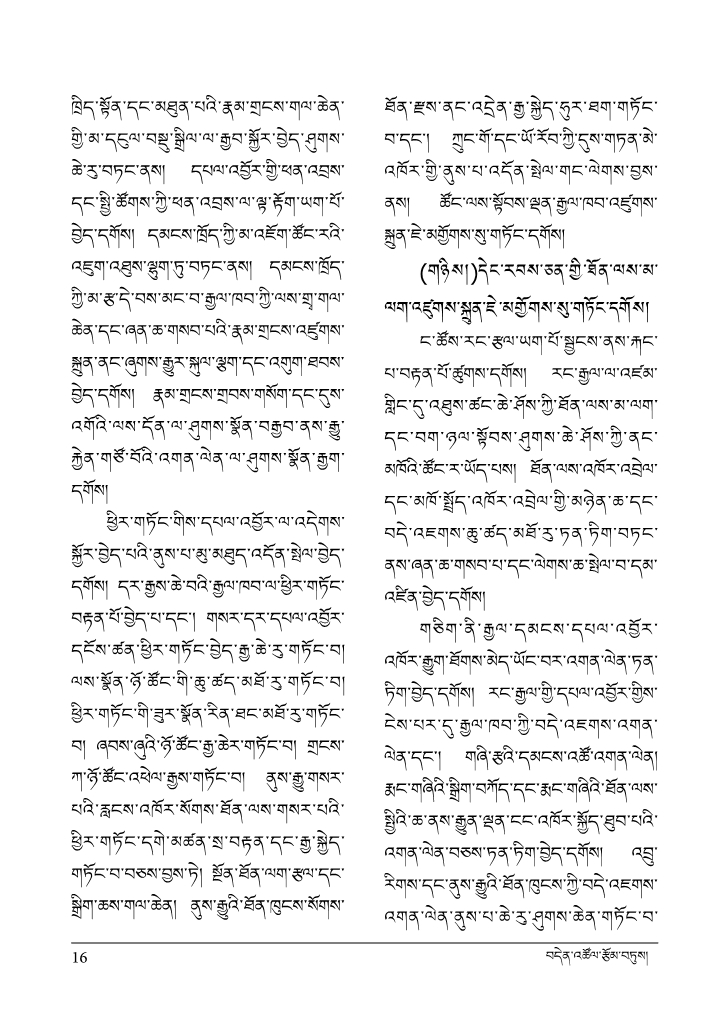 ཁྲིད་སྟོན་དང་མཐུན་པའི་རྣམ་གྲངས་གལ་ཆེན་
གྱི་མ་དངུལ་བསྡུ་སྒྲིལ་ལ་རྒྱབ་སྐྱོར་བྱེད་ཤུགས་
ཆེ་རུ་བཏང་ནས། དཔལ་འབྱོར་གྱི་ཕན་འབྲས་
དང་སྤྱི་ཚོགས་ཀྱི་ཕན་འབྲས་ལ་ལྟ་རྟོག་ཡག་པོ་
བྱེད་དགོས། དམངས་ཁྲོད་ཀྱི་མ་འཇོག་ཚོང་རའི་
འཇུག་འཐུས་ལྷུག་ཏུ་བཏང་ནས། དམངས་ཁྲོད་
ཀྱི་མ་རྩ་དེ་བས་མང་བ་རྒྱལ་ཁབ་ཀྱི་ལས་གྲྭ་གལ་
ཆེན་དང་ཞན་ཆ་གསབ་པའི་རྣམ་གྲངས་འཛུགས་
སྐྲུན་ནང་ཞུགས་རྒྱུར་སྐུལ་ལྕག་དང་འགུག་ཐབས་
བྱེད་དགོས། རྣམ་གྲངས་གྲབས་གསོག་དང་དུས་
འགོའི་ལས་དོན་ལ་ཤུགས་སྣོན་བརྒྱབ་ནས་རྒྱུ་
རྐྱེན་གཙོ་བོའི་འགན་ལེན་ལ་ཤུགས་སྣོན་རྒྱག་
དགོས།
ཕྱིར་གཏོང་གིས་དཔལ་འབྱོར་ལ་འདེགས་
སྐྱོར་བྱེད་པའི་ནུས་པ་མུ་མཐུད་འདོན་སྤེལ་བྱེད་
དགོས། དར་རྒྱས་ཆེ་བའི་རྒྱལ་ཁབ་ལ་ཕྱིར་གཏོང་
བརྟན་པོ་བྱེད་པ་དང་། གསར་དར་དཔལ་འབྱོར་
དངོས་ཚན་ཕྱིར་གཏོང་བྱེད་རྒྱ་ཆེ་རུ་གཏོང་བ།
ལས་སྣོན་ཉོ་ཚོང་གི་ཆུ་ཚད་མཐོ་རུ་གཏོང་བ།
ཕྱིར་གཏོང་གི་ཟུར་སྣོན་རིན་ཐང་མཐོ་རུ་གཏོང་
བ། ཞབས་ཞུའི་ཉོ་ཚོང་རྒྱ་ཆེར་གཏོང་བ། གྲངས་
ཀ་ཉོ་ཚོང་འཕེལ་རྒྱས་གཏོང་བ། ནུས་རྒྱུ་གསར་
པའི་རླངས་འཁོར་སོགས་ཐོན་ལས་གསར་པའི་
ཕྱིར་གཏོང་དགེ་མཚན་སྲ་བརྟན་དང་རྒྱ་སྐྱེད་
གཏོང་བ་བཅས་བྱས་ཏེ། སྔོན་ཐོན་ལག་རྩལ་དང་
སྒྲིག་ཆས་གལ་ཆེན། ནུས་རྒྱུའི་ཐོན་ཁུངས་སོགས་
ཐོན་རྫས་ནང་འདྲེན་རྒྱ་སྐྱེད་ཧུར་ཐག་གཏོང་
བ་དང་། ཀྲུང་གོ་དང་ཡོ་རོབ་ཀྱི་དུས་གཏན་མེ་
འཁོར་གྱི་ནུས་པ་འདོན་སྤེལ་གང་ལེགས་བྱས་
ནས། ཚོང་ལས་སྟོབས་ལྡན་རྒྱལ་ཁབ་འཛུགས་
སྐྲུན་ཇེ་མགྱོགས་སུ་གཏོང་དགོས།
(གཉིས།)དེང་རབས་ཅན་གྱི་ཐོན་ལས་མ་
ལག་འཛུགས་སྐྲུན་ཇེ་མགྱོགས་སུ་གཏོང་དགོས།
ང་ཚོས་རང་རྩལ་ཡག་པོ་སྦྱངས་ནས་རྐང་
པ་བརྟན་པོ་ཚུགས་དགོས། རང་རྒྱལ་ལ་འཛམ་
གླིང་དུ་འཐུས་ཚང་ཆེ་ཤོས་ཀྱི་ཐོན་ལས་མ་ལག་
དང་བག་ཉལ་སྟོབས་ཤུགས་ཆེ་ཤོས་ཀྱི་ནང་
མཁོའི་ཚོང་ར་ཡོད་པས། ཐོན་ལས་འཁོར་འབྲེལ་
དང་མཁོ་སྤྲོད་འཁོར་འབྲེལ་གྱི་མཉེན་ཆ་དང་
བདེ་འཇགས་ཆུ་ཚད་མཐོ་རུ་ཏན་ཏིག་བཏང་
ནས་ཞན་ཆ་གསབ་པ་དང་ལེགས་ཆ་སྤེལ་བ་དམ་
འཛིན་བྱེད་དགོས།
གཅིག་ནི་རྒྱལ་དམངས་དཔལ་འབྱོར་
འཁོར་རྒྱུག་ཐོགས་མེད་ཡོང་བར་འགན་ལེན་ཏན་
ཏིག་བྱེད་དགོས། རང་རྒྱལ་གྱི་དཔལ་འབྱོར་གྱིས་
ངེས་པར་དུ་རྒྱལ་ཁབ་ཀྱི་བདེ་འཇགས་འགན་
ལེན་དང་། གཞི་རྩའི་དམངས་འཚོ་འགན་ལེན།
རྨང་གཞིའི་སྒྲིག་བཀོད་དང་རྨང་གཞིའི་ཐོན་ལས་
སྤྱིའི་ཆ་ནས་རྒྱུན་ལྡན་ངང་འཁོར་སྐྱོད་ཐུབ་པའི་
འགན་ལེན་བཅས་ཏན་ཏིག་བྱེད་དགོས། འབྲུ་
རིགས་དང་ནུས་རྒྱུའི་ཐོན་ཁུངས་ཀྱི་བདེ་འཇགས་
འགན་ལེན་ནུས་པ་ཆེ་རུ་ཤུགས་ཆེན་གཏོང་བ་
16
བདེན་འཚོལ་རྩོམ་བཏུས།